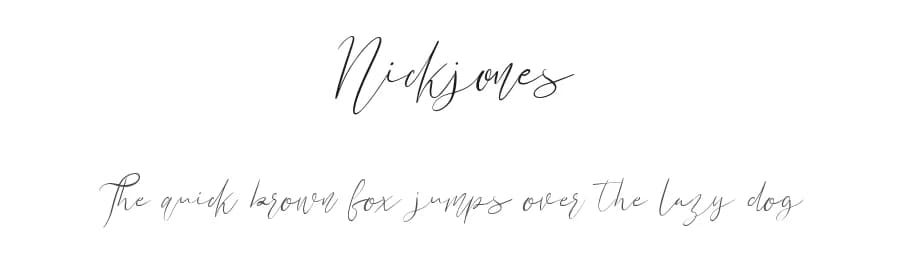 Nickjones
The quick brown fox jumps over the lazy dog